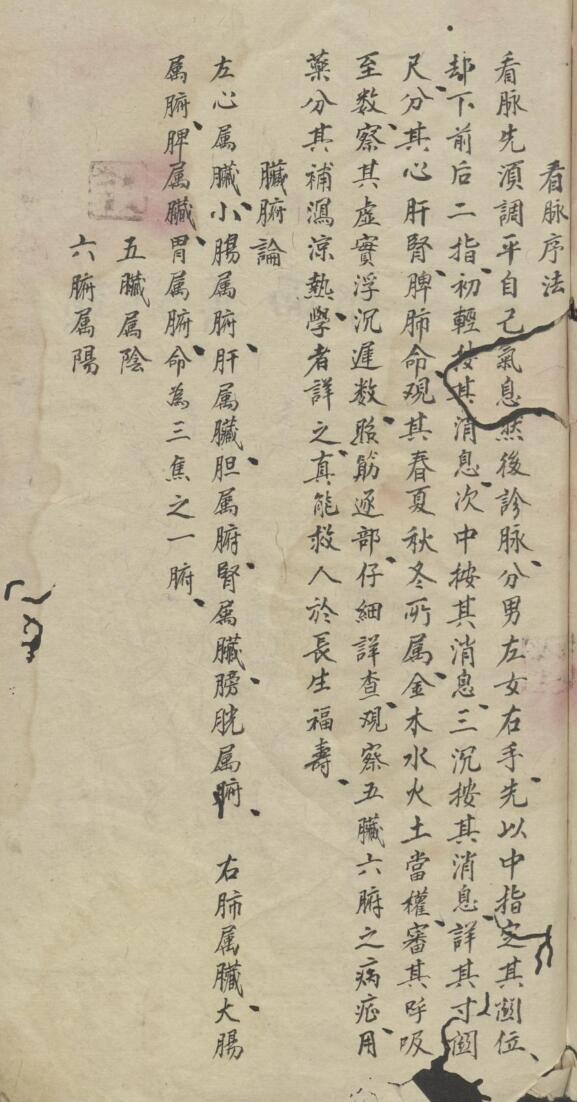 看脉序法
看脉先須調平自己氣息然後診脉、分男左女右手、先以中指定其關位、
却下前后二指、初輕按其消息、次中按其消息、三沉按其消息、詳其寸關
尺、分其心肝腎、脾肺命、观其春夏秋冬所属、金木水火土當權、審其呼吸
至数、察其虛實浮沉遲数、照筋逐部、仔細詳查、观察五臟六腑之病症、用
藥分其補瀉涼熱、學者詳之、真能救人於長生福壽、
臟腑論
左心属臟、小腸属腑、肝属臟、胆属腑、腎属臟、膀胱属腑、 右肺属臟、大腸
属腑、脾属臟、胃属腑、命為三焦之一腑、
五臟属陰
六腑属陽